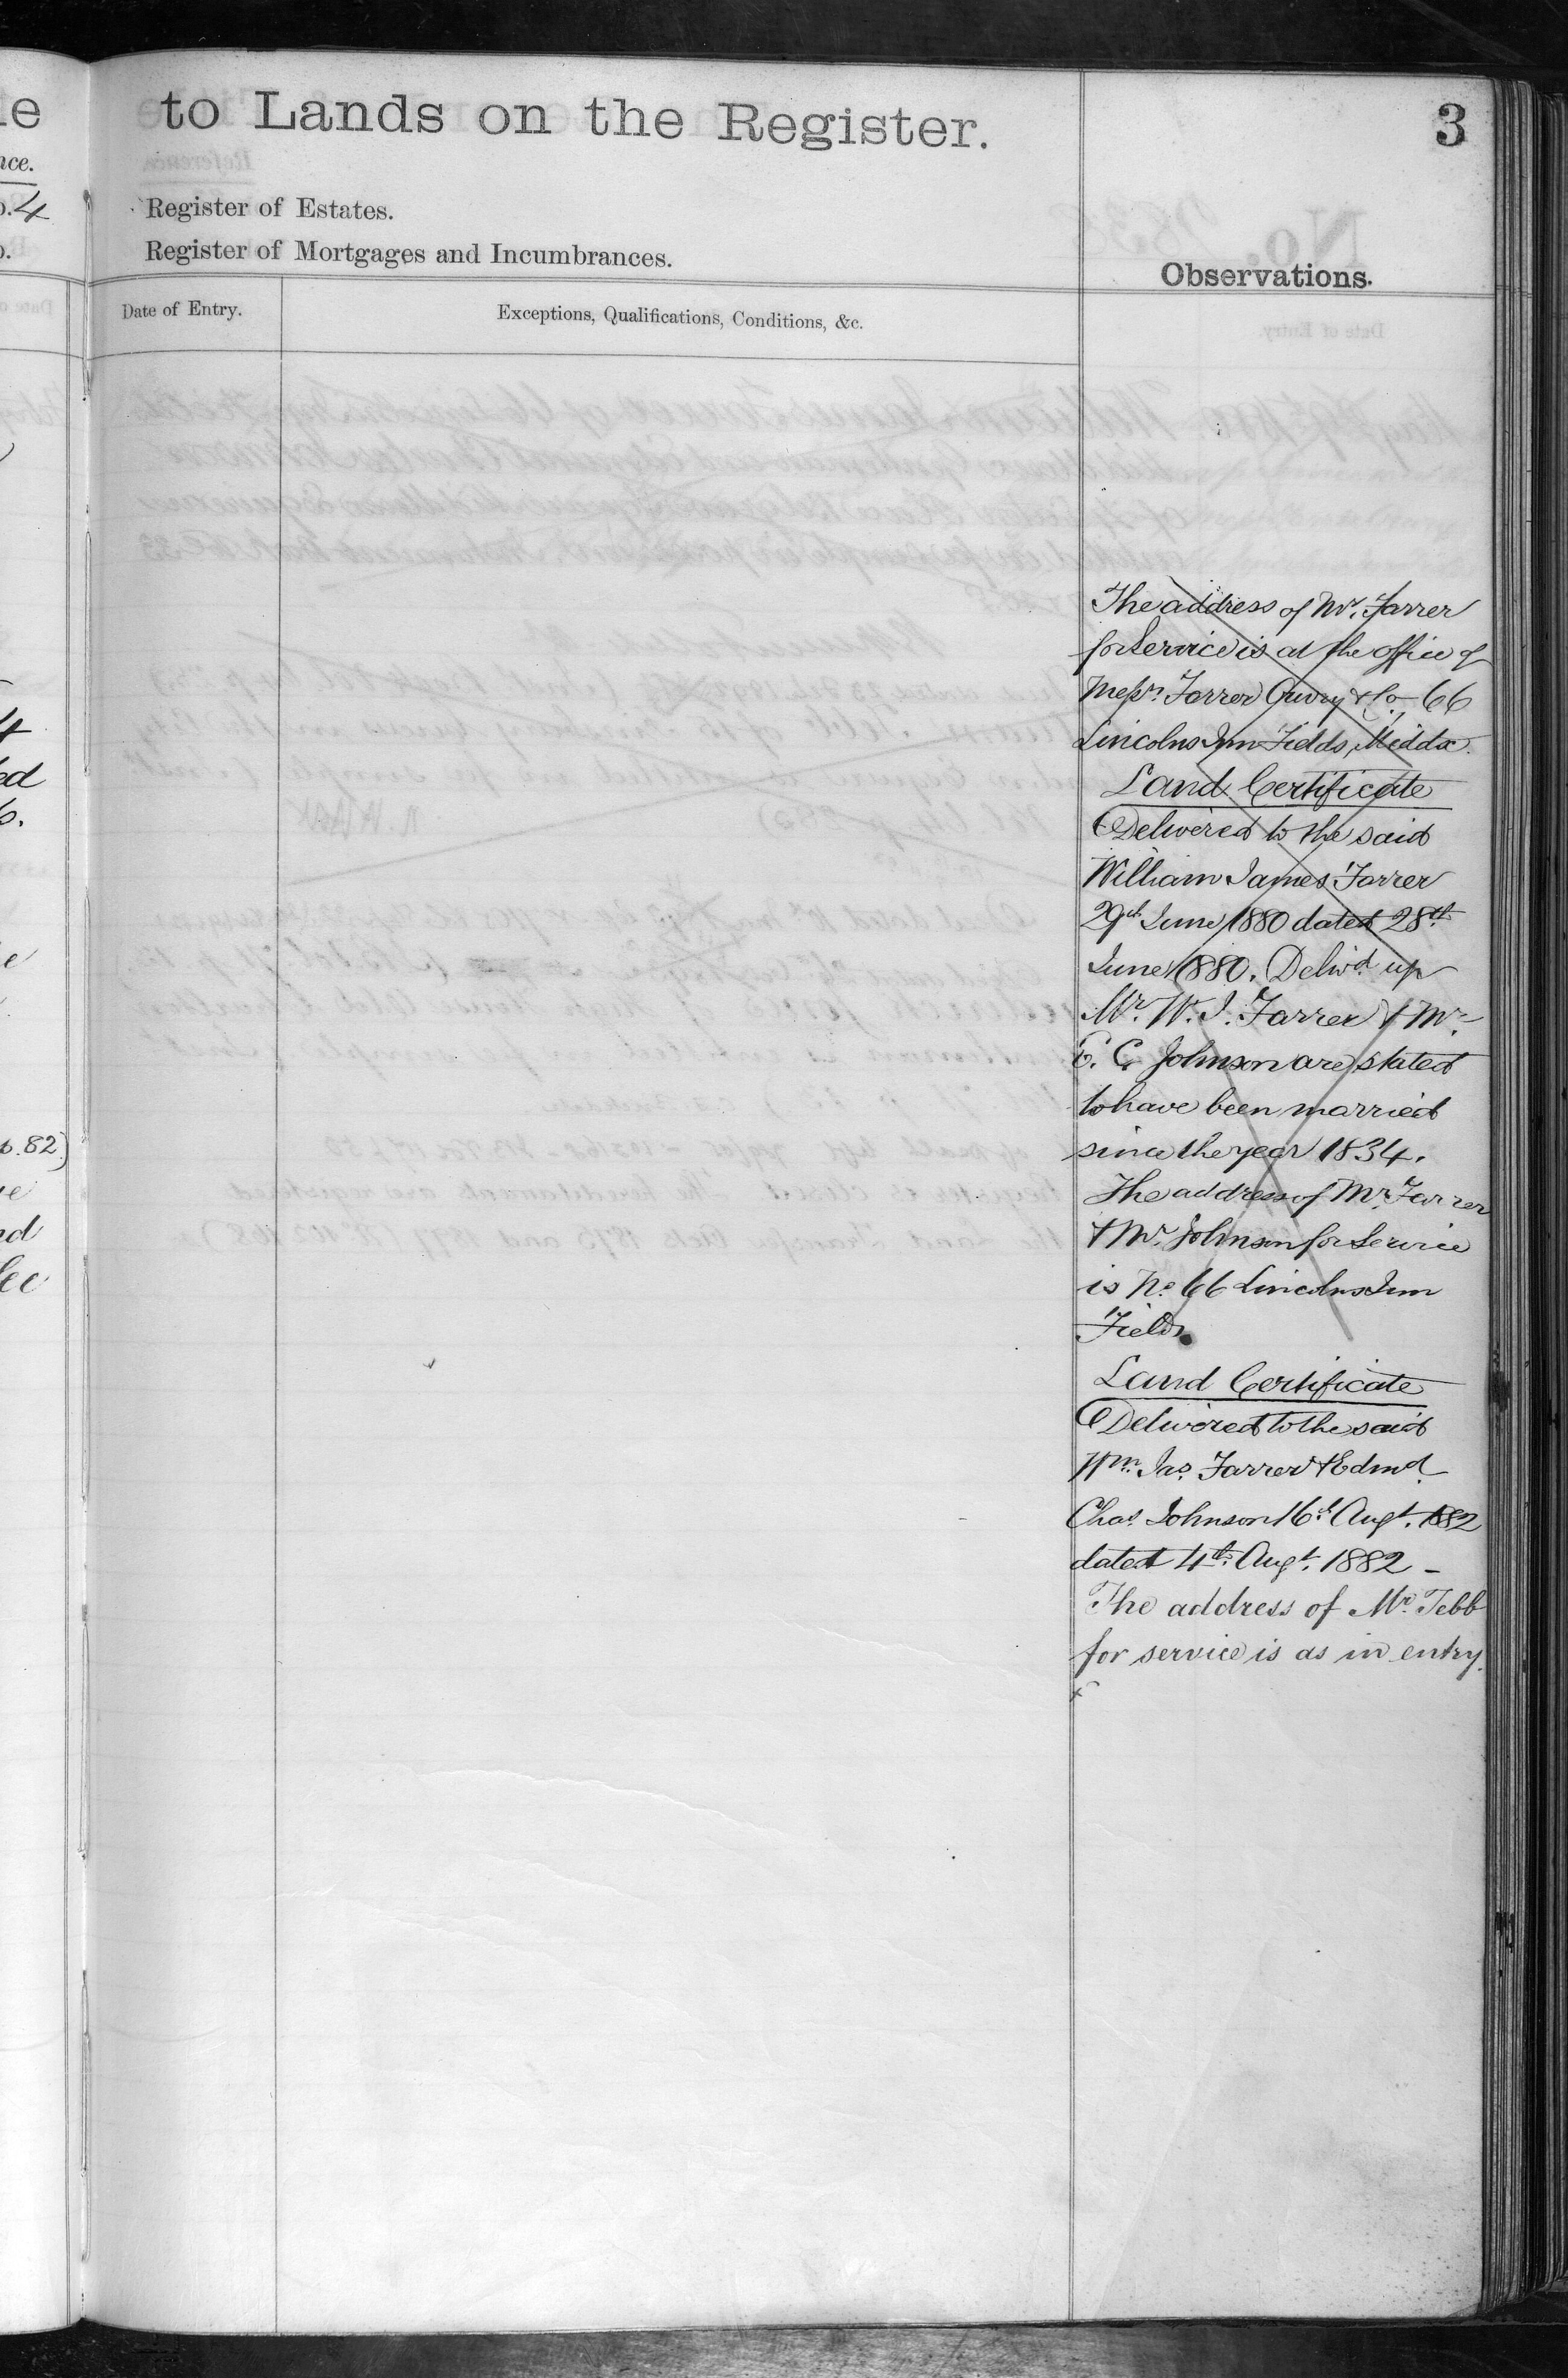 to Lands on the Register.
3
Register of Estates.
Register of Mortgages and Incumbrances.
Observations.
Date of Entry.
Exceptions, Qualifications, Conditions, &c.
The address of Mr. Farrer
for Service is at the office of
Messrs. Farrer Ouvry & Co. 66
Lincolns Inn Fields, Middx.
Land Certificate
Delivered to the said
William James Farrer
29th June 1880 dated 28th
June 1880. Deliv'd up
Mr. W. J. Farrer & Mr.
E. C. Johnson are stated
to have been married
since the year 1834.
The address of Mr. Farrer
& Mr. Johnson for Service
is No. 66 Lincolns Inn
Fields.
Land Certificate
Delivered to the said
Wm. Jas. Farrer & Edmd.
Chas. Johnson 16th Augt. 1882
dated 4th Augt. 1882 -
The address of Mr. Tebb
for service is as in entry.